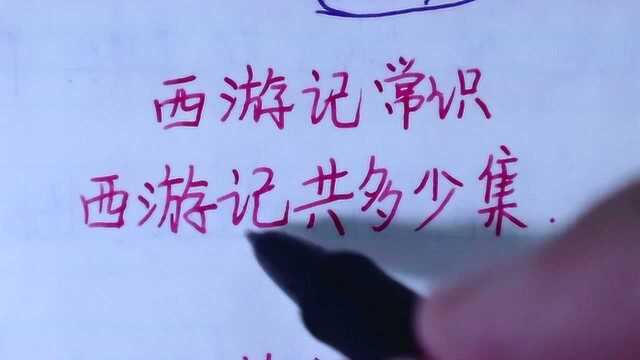 西游记常识
西游记共多少集.